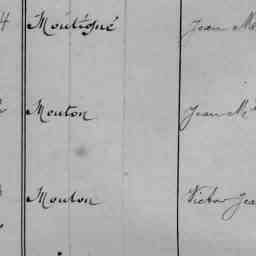 4 Moutigné Jean M
Mouton Jean M
Mouton Victor Jea